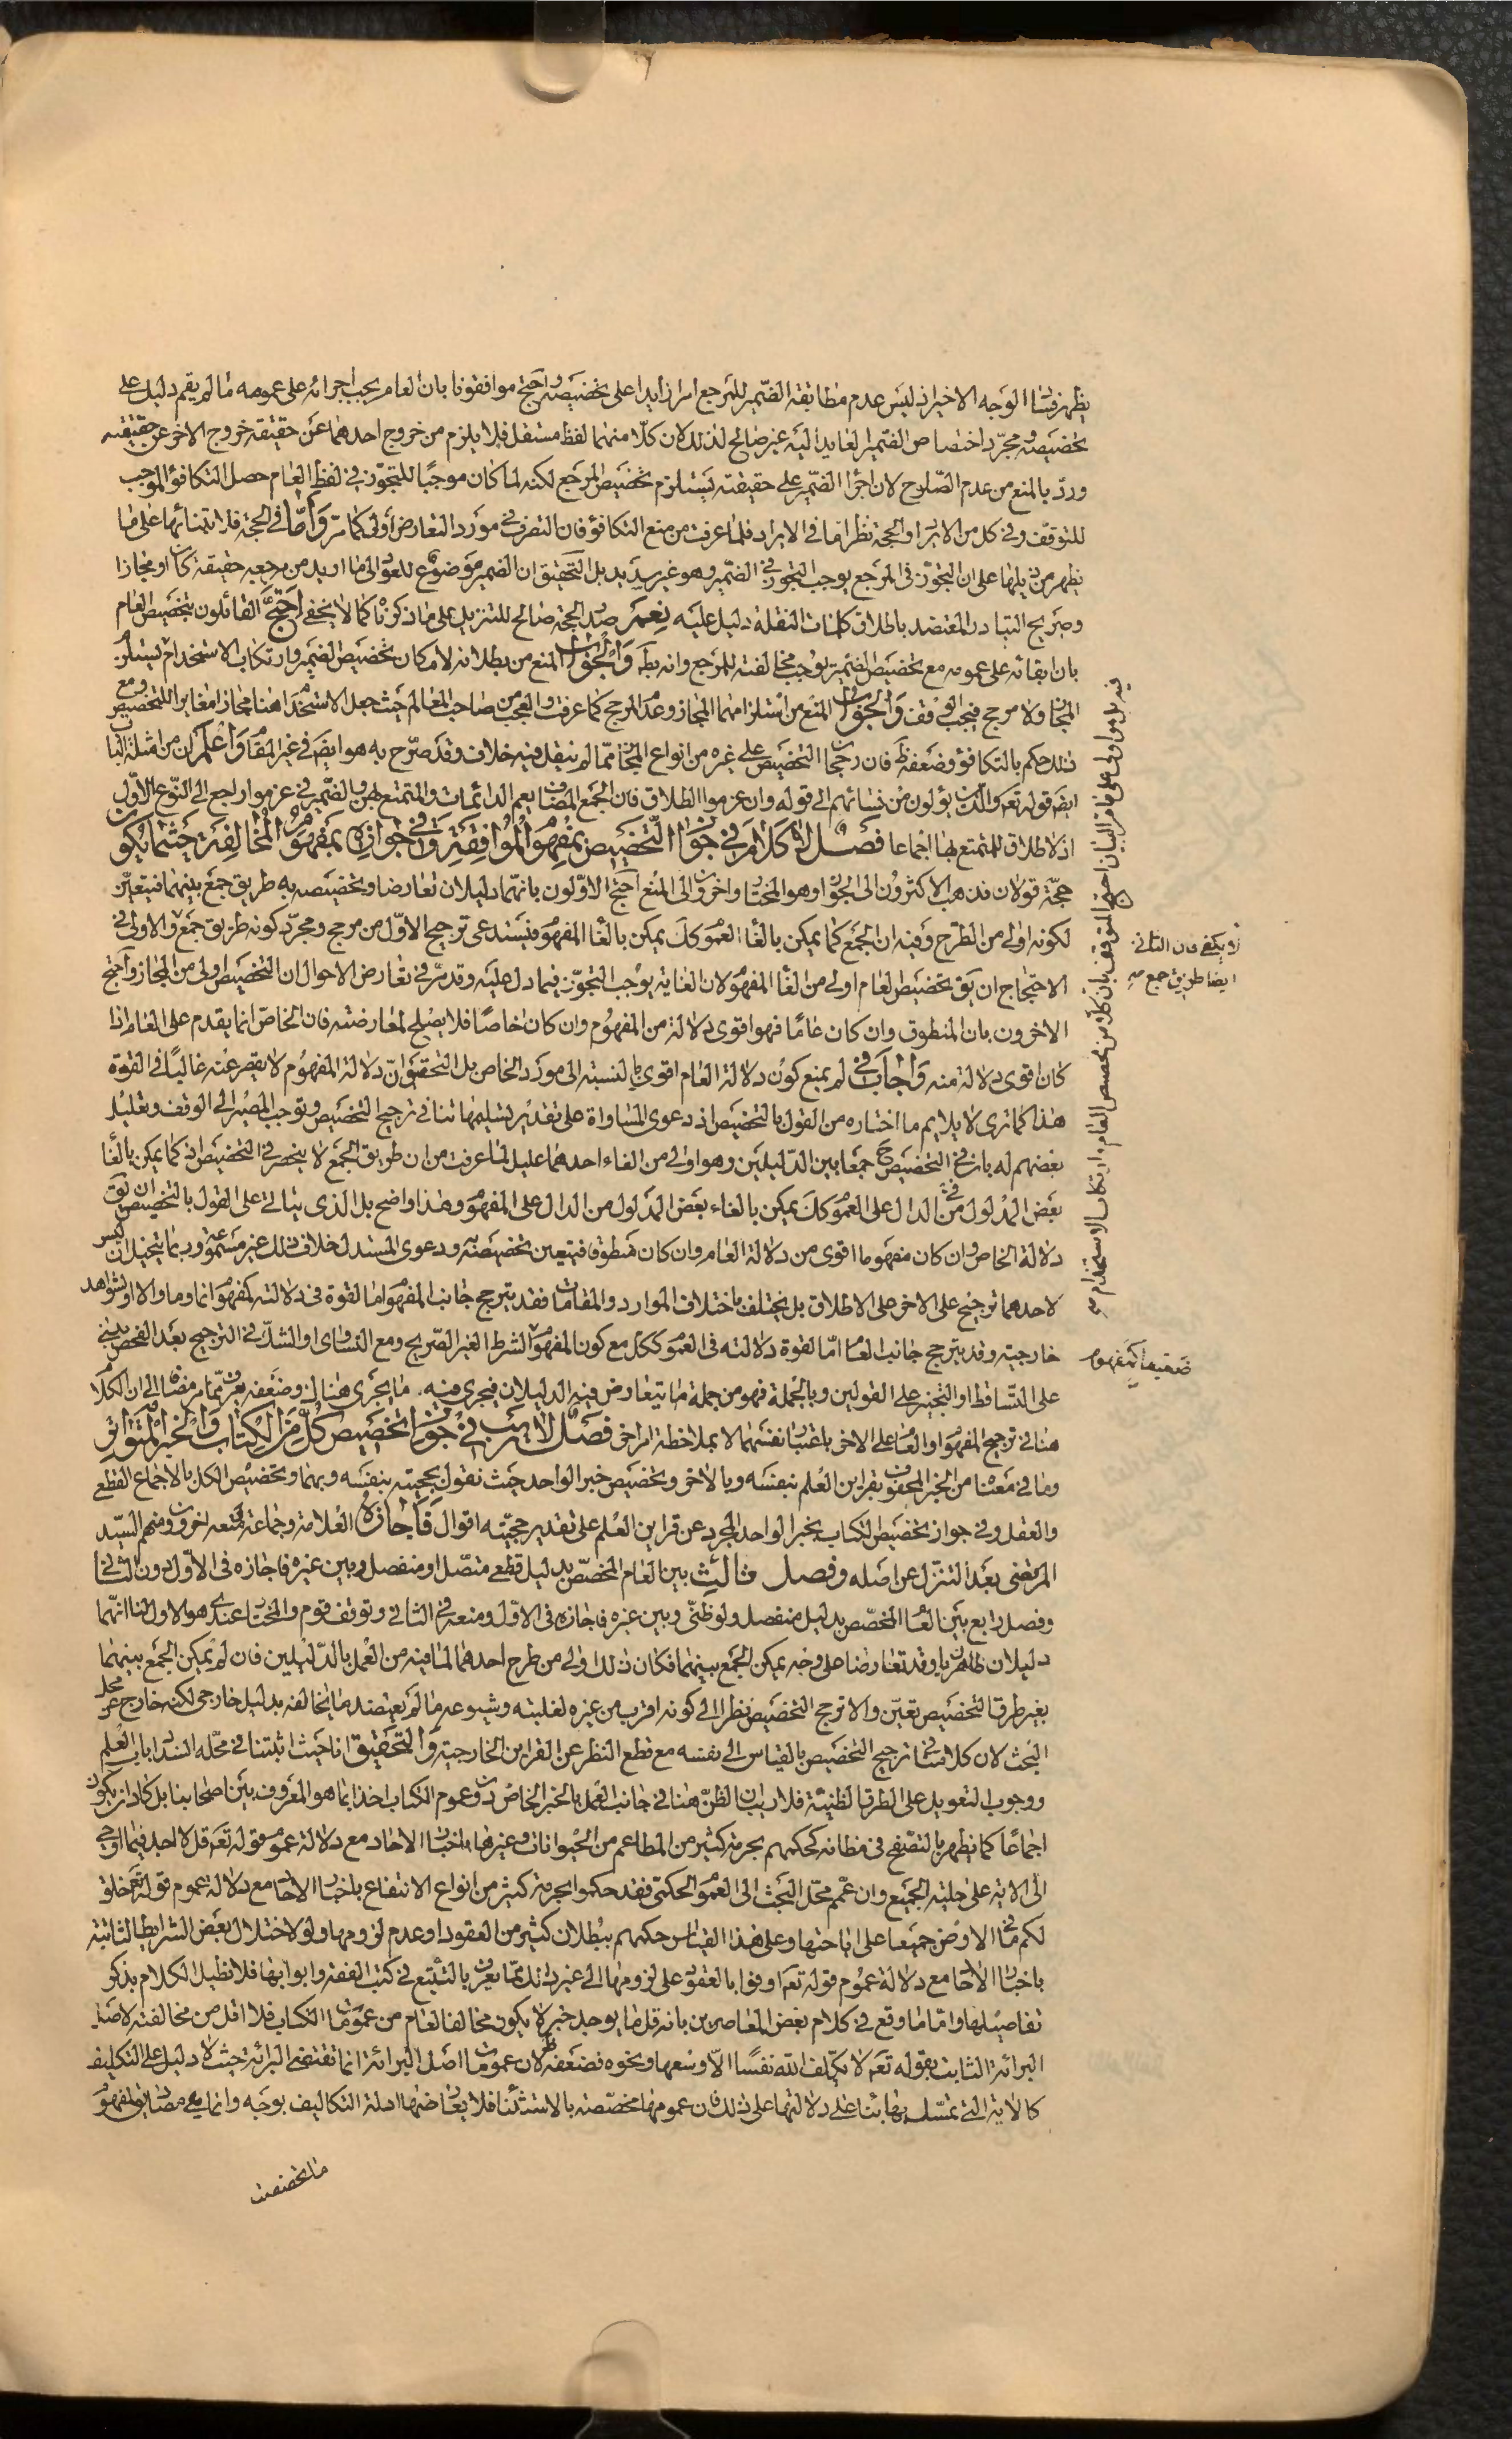 يظهر فساد الوجه الاخير اذ ليس عدم مطابقة الضمير للمرجع امرا زايدا على تخصيصه واحتج موافقونا بان العام يجب اجرائه على عمومه ما لم يقم دليل على
تخصيصه ومجرد اختصاص الضمير العايد اليه غير صالح لذلك لان كلا منهما لفظ مستقل فلا يلزم من خروج احدهما عن حقيقته خروج الاخر عن حقيقته
ورد بالمنع من عدم الصلوح لان اجراء الضمير على حقيقته يستلزم تخصيص المرجع لكنه لما كان موجبا للتجوز في لفظ العام حصل التكافؤ الموجب
للتوقف وفي كل من الايراد والحجة نظر اما في الايراد فلما عرفت من منع التكافؤ فان التصرف في مورد التعارض اولى كما مر واما في الحجة فلابتنائها على ما
يظهر من ذيلها على ان التجوز في المرجع يوجب التجوز في الضمير وهو غير سديد بل التحقيق ان الضمير موضوع للعود الى ما اريد من مرجعه حقيقة كان او مجازا
وصريح التبادر المعتضد باطلاق كلمات النقلة دليل عليه نعم صدر الحجة صالح للتنزيل على ما ذكرناه كما لا يخفى احتج القائلون بتخصيص العام
بان ابقائه على عمومه مع تخصيص الضمير يوجب مخالفته للمرجع وانه بط والجواب المنع من بطلانه لامكان تخصيص الضمير وارتكاب الاستخدام يستلزم
المجاز ولا مرجح فيجب الوقف والجواب المنع من استلزامهما المجاز وعدم المرجح كما عرفت والعجب من صاحب المعالم حيث جعل الاستخدام هنا مجازا مغايرا للتخصيص ومع
ذلك حكم بالتكافؤ وضعفه ظ فان رجحان التخصيص على غيره من انواع المجاز مما لم ينقل فيه خلاف وقد صرح به هو ايض في غير المقام واعلم ان من امثلة الباب
ايض قوله تعه والذين يؤلون من نسائهم الى قوله وان عزموا الطلاق فان الجمع المضاف يعم الدائمات والمتمتع بهن والضمير في عزموا راجع الى النوع الاول
اذ لا طلاق للمتمتع بها اجماعا فصل لا كلام في جواز التخصيص بمفهوم الموافقة وفي جوازه بمفهوم المخالفة حيثما يكون
حجة قولان فذهب الاكثرون الى الجواز وهو المختار واخرون الى المنع احتج الاولون بانهما دليلان تعارضا وتخصيصه به طريق جمع بينهما فيتعين
لكونه اولى من الطرح وفيه ان الجمع كما يمكن بالغاء العموم كك يمكن بالغاء المفهوم فيستدعى ترجيح الاول من مرجح ومجرد كونه طريق جمع والاولى في
الاحتجاج ان يق تخصيص العام اولى من الغاء المفهوم لان الغاية يوجب التجوز فيما دل عليه وقد مر في تعارض الاحوال ان التخصيص اولى من المجاز واحتج
الاخرون بان المنطوق وان كان عاما فهو اقوى دلالة من المفهوم وان كان خاصا فلا يصلح لمعارضته فان الخاص انما يقدم على العام اذا
كان اقوى دلالة منه واجاب في لم بمنع كون دلالة العام اقوى بالنسبة الى مورد الخاص بل التحقيق ان دلالة المفهوم لا يقصر عنه غالبا في القوة
هذا كما ترى لا يلايم ما اختاره من القول بالتخصيص اذ دعوى المساواة على تقدير تسليمها تنافي ترجيح التخصيص وتوجب المصير الى الوقف وتعليل
بعضهم له بان في التخصيص ح جمعا بين الدليلين وهو اولى من الغاء احدهما عليل لما عرفت من ان طريق الجمع لا ينحصر في التخصيص اذ كما يمكن بالغاء
بعض المدلول من الدال على العموم كك يمكن بالغاء بعض المدلول من الدال على المفهوم وهذا واضح بل الذى يتاتى على القول بالتخصيص ان يق
دلالة الخاص وان كان مفهوما اقوى من دلالة العام وان كان منطوقا فيتعين تخصيصه به ودعوى المستدل خلاف ذلك غير مسموعة وربما يتخيل ان ليس
لاحدهما ترجيح على الاخر على الاطلاق بل يختلف باختلاف الموارد والمقامات فقد يترجح جانب المفهوم اما لقوة في دلالته كمفهوم انما وما والا او لشواهد
خارجية وقد يترجح جانب العام اما لقوة دلالته في العموم ككل مع كون المفهوم الشرط الغير الصريح ومع التساوي او الشك في الترجيح بعد الفحص يبنى
على التساقط او التخيير على القولين وبالجملة فهو من جملة ما يتعارض فيه الدليلان فيجرى فيه ما يجرى هنالك وضعفه يعرف مما مر مضافا الى ان الكلام
هنا في ترجيح المفهوم او العام على الاخر باعتبار نفسهما لا بملاحظة امر اخر فصل لا ريب في جواز تخصيص كل من الكتاب والخبر المتواتر
وما في معناه من الخبر المحفوف بقراين العلم بنفسه وبالاخر وتخصيص خبر الواحد حيث نقول بحجيته بنفسه وبهما وتخصيص الكل بالاجماع القطعي
والعقل وفي جواز تخصيص الكتاب بخبر الواحد المجرد عن قراين العلم على تقدير حجيته اقوال فاجازه العلامة وجماعة ومنعه اخرون ومنهم السيد
المرتضى بعد التنزل عن اصله وفصل ثالث بين العام المخصص بدليل قطعى متصل او منفصل وبين غيره فاجازه في الاول دون الثاني
وفصل رابع بين العام المخصص بدليل منفصل ولو ظنى وبين غيره فاجازه في الاول ومنعه في الثاني وتوقف قوم والمختار عندى هو الاول لنا انهما
دليلان ظاهريان وقد تعارضا على وجه يمكن الجمع بينهما فكان ذلك اولى من طرح احدهما لما فيه من العمل بالدليلين فان لم يمكن الجمع بينهما
بغير طريق التخصيص تعين والا ترجح التخصيص نظرا الى كونه اقرب من غيره لغلبته وشيوعه ما لم يعتضد ما يخالفه بدليل خارجى لكنه خارج عن محل
البحث لان كلامنا في ترجيح التخصيص بالقياس الى نفسه مع قطع النظر عن القراين الخارجية والتحقيق انا حيث اثبتنا في محله انسداد باب العلم
ووجوب التعويل على الطرق الظنية فلا ريب ان الظن هنا في جانب العمل بالخبر الخاص دون عموم الكتاب اخذا بما هو المعروف بين اصحابنا بل كاد ان يكون
اجماعا كما يظهر بالتصفح في مظانه كحكمهم بحرمة كثير من المطاعم من الحيوانات وغيرها باخبار الاحاد مع دلالة عموم قوله تعه قل لا اجد فيما اوحى
الى الاية على حلية الجميع وان عمم محل البحث الى العموم الحكمتى فقد حكموا بحرمة كثير من انواع الانتفاع باخبار الاحاد مع دلالة عموم قوله تعه خلق
لكم ما في الارض جميعا على اباحتها وعلى هذا القياس حكمهم ببطلان كثير من العقود او عدم لزومها ولو لاختلال بعض الشرايط الثابتة
باخبار الاحاد مع دلالة عموم قوله تعه اوفوا بالعقود على لزومها الى غير ذلك مما يعرف بالتتبع في كتب الفقه وابوابها فلا نطيل الكلام بذكر
تفاصيلها واما ما وقع في كلام بعض المعاصرين بانه قل ما يوجد خبر لا يكون مخالفا لعام من عمومات الكتاب فلا اقل من مخالفته لاصل
البرائة الثابت بقوله تعه لا يكلف الله نفسا الا وسعها ونحوه فضعفه ظ لان عمومات اصل البرائة انما تقتضى البرائة حيث لا دليل على التكليف
كالاية التي تمسك بها بناء على دلالتها على ذلك فان عمومها مخصصة بالاستثناء فلا يعارضها ادلة التكاليف بوجه وانما هي مصاديق لمفهوم
ما تخصصت
ايضا طريق جمع منه
ضعيفا كمفهوم